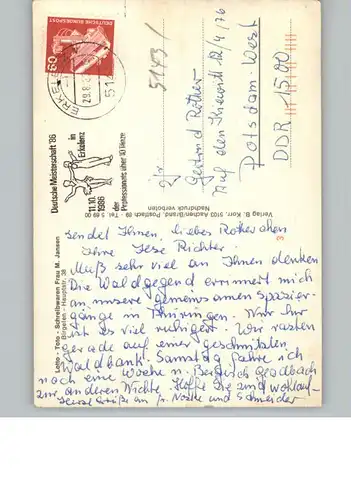 DEUTSCHE BUNDESPOST
60
ERKELENZ
29.8.
5143/
Deutsche Meisterschaft '86
in Erkelenz
11.10.1986
der
Professionals über 10 Tänze
Frau
Gertrud Rother
Auf dem Kiewitt 12/4/76
Potsdam-West
DDR 1500
Verlag B. Korr, 5103 Aachen-Brand, Postfach 69 - Tel. 5 69 00
Nachdruck verboten
Lotto - Toto - Schreibwaren Frau M. Jansen
Birgelen - Hauptstr. 38
sendet Ihnen, liebes Rotherchen
Ihre Ilse Richter.
Muß sehr viel an Ihnen denken
Die Waldgegend erinnert mich
an unsere gemeinsamen Spazier-
gänge in Thüringen. Nur hier
ist es viel ruhiger. Wir rasten
gerade auf einer geschnitzten
Waldbank. Samstag fahre ich
noch eine Woche n. Bergisch Gladbach
zur anderen Nichte. Hoffe Sie sind wohlauf.
Herzl. Grüße an Fr. Noske und Schneider